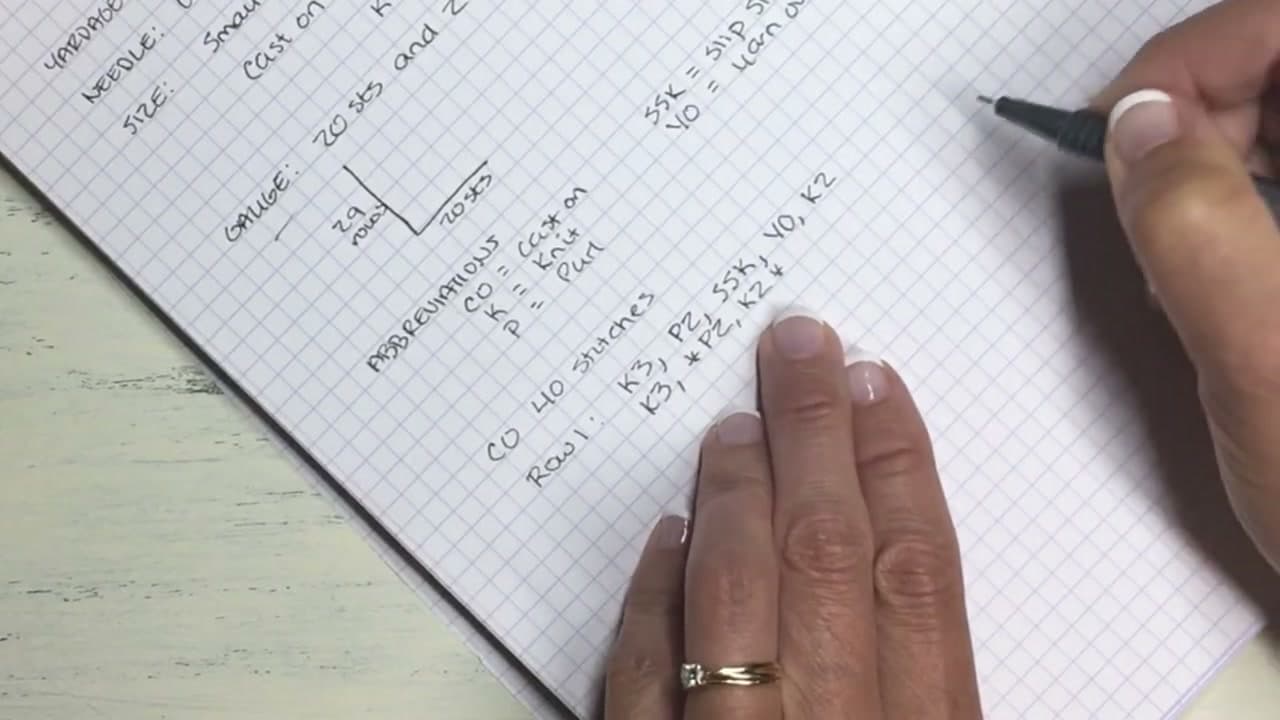 YARDAGE
NEEDLE:
SIZE: Small
Cast on
K
GAUGE: 20 sts and 2
29 rows
20 sts
ABBREVIATIONS
CO = Cast on
K = Knit
P = Purl
SSK = Slip
YO = yarn
CO 40 stitches
Row 1: K3, P2, SSK, YO, K2
K3, *P2, K2*